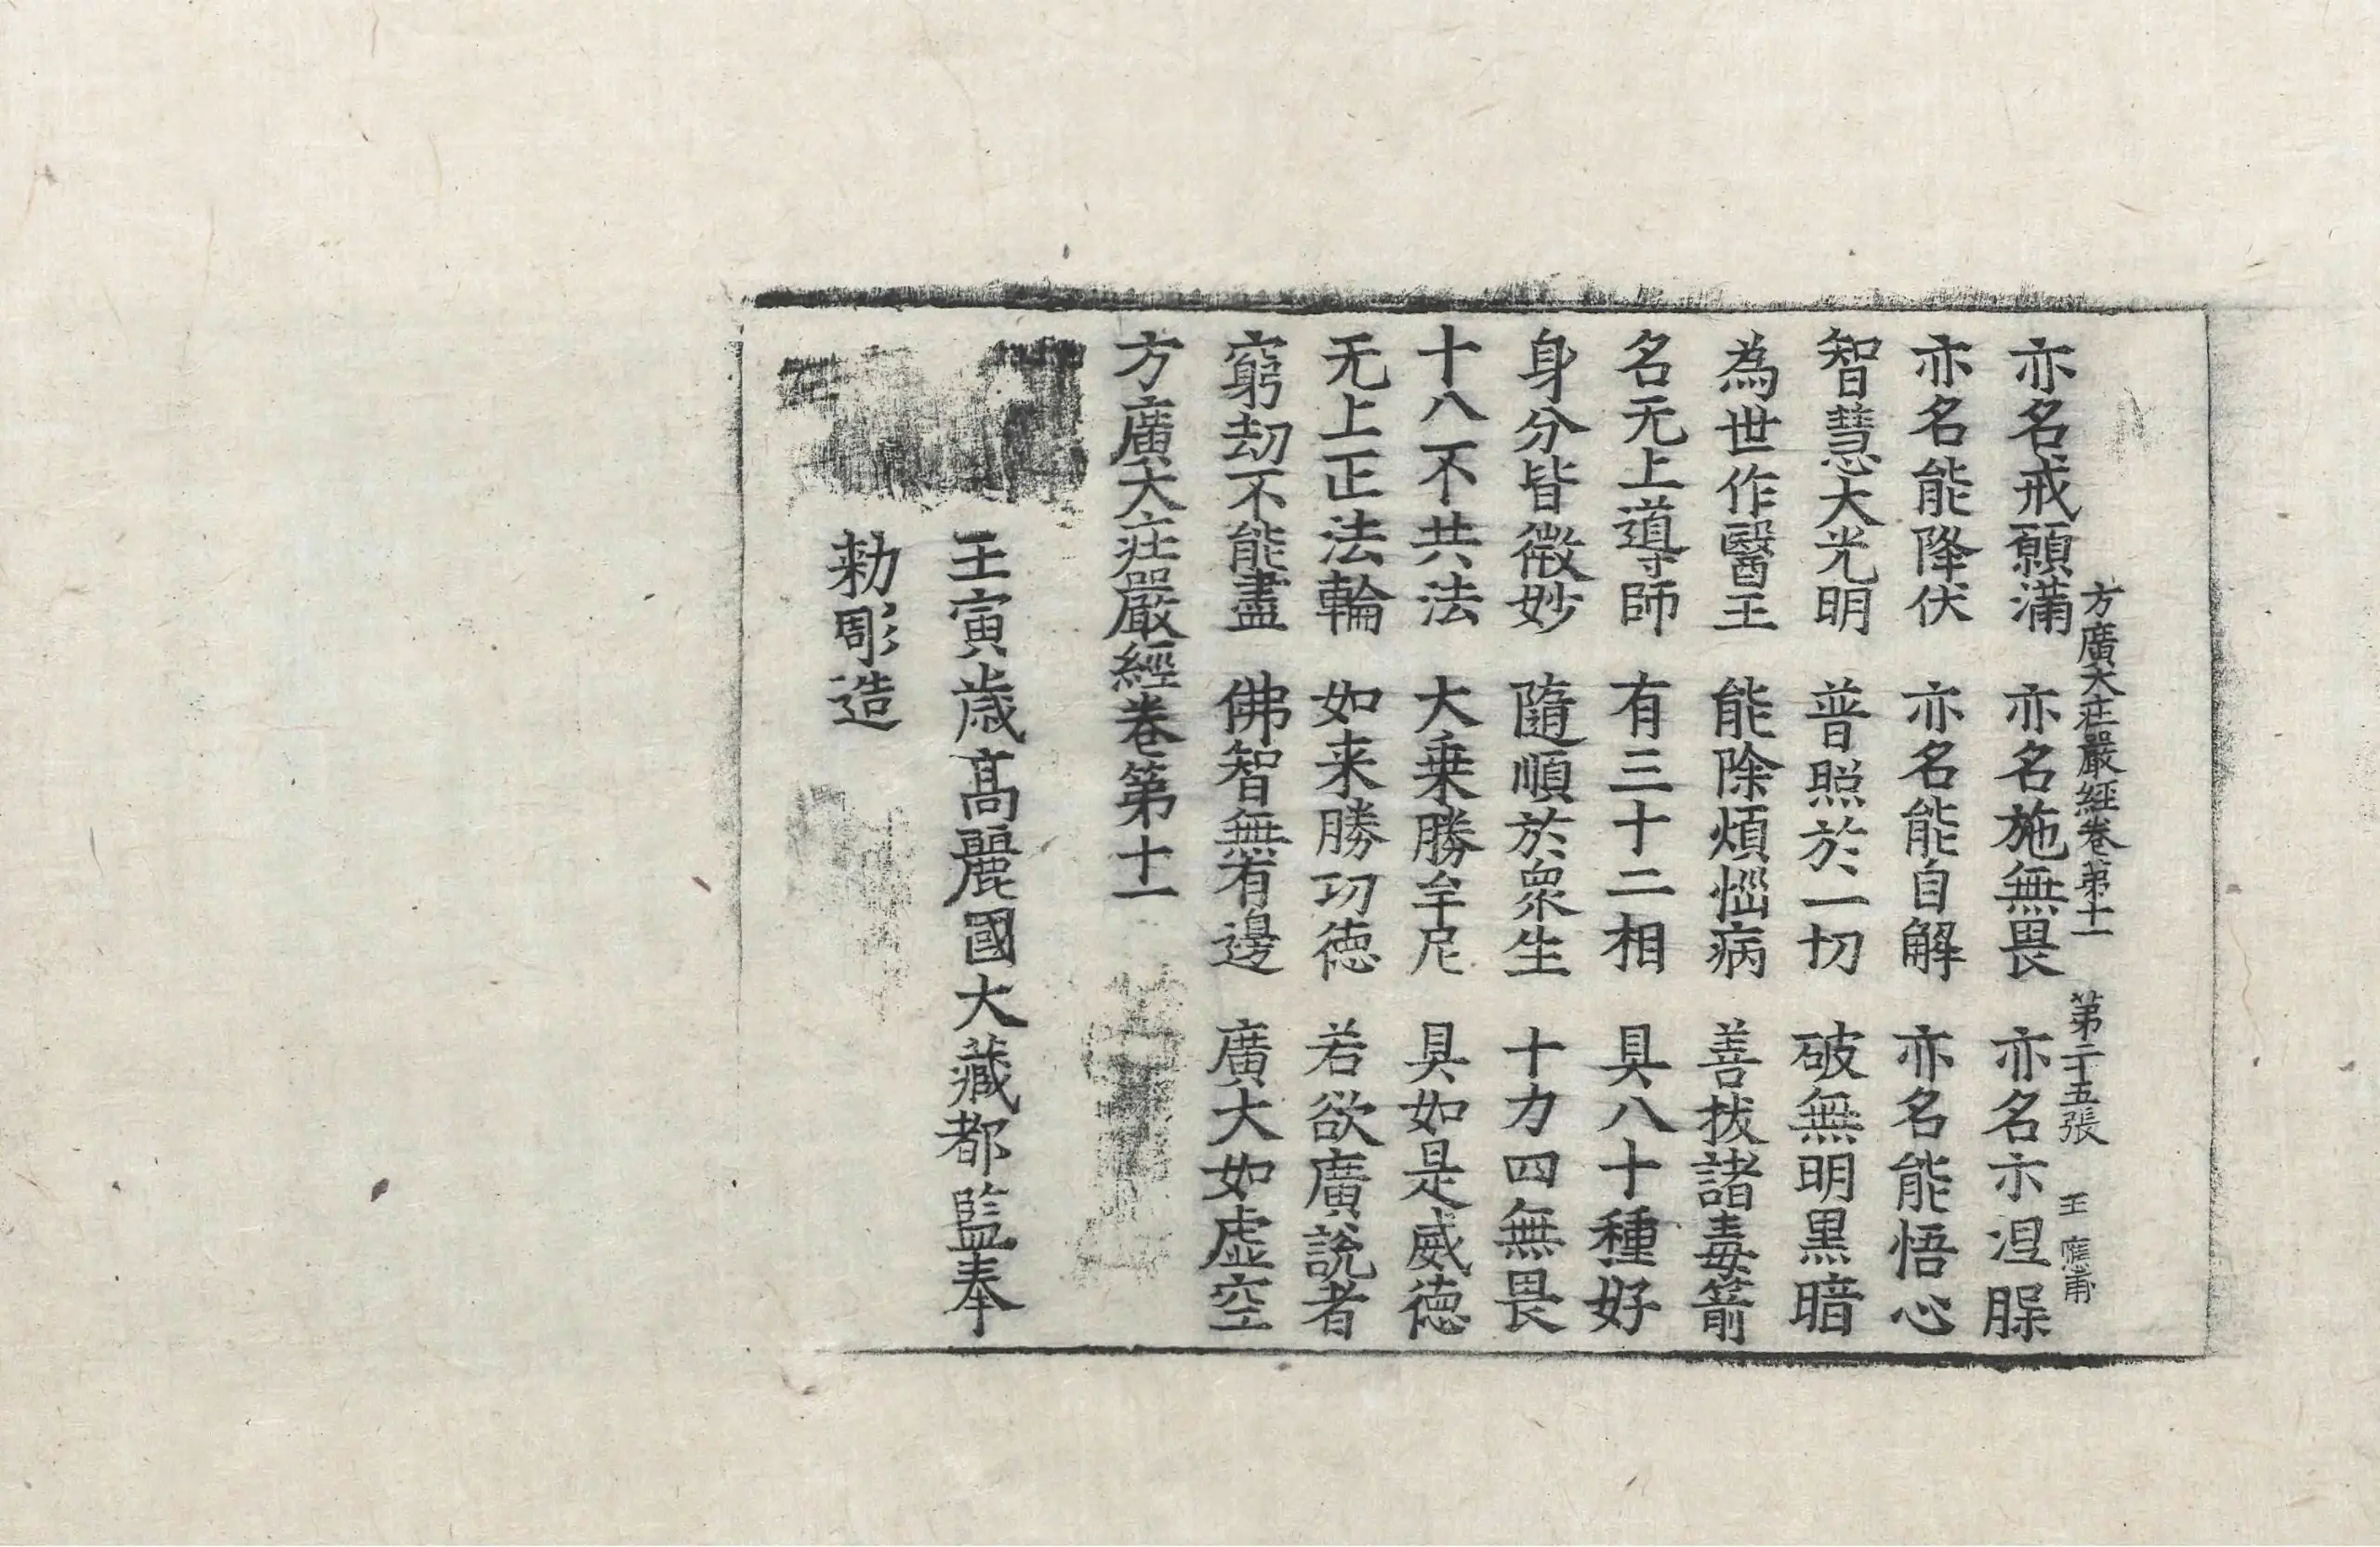 方廣大莊嚴經卷第十一 第二十五張 王 應甫
亦名戒願滿 亦名施無畏 亦名示涅腥
亦名能降伏 亦名能自解 亦名能悟心
智慧大光明 普照於一切 破無明黑暗
為世作醫王 能除煩惱病 善拔諸毒箭
名无上導師 有三十二相 具八十種好
身分皆微妙 隨順於衆生 十力四無畏
十八不共法 大乗勝牟尼 具如是威徳
无上正法輪 如来勝功徳 若欲廣說者
窮劫不能盡 佛智無有邊 廣大如虛空
方廣大莊嚴經卷第十一
壬寅歳髙麗國大藏都監奉
勅彫造